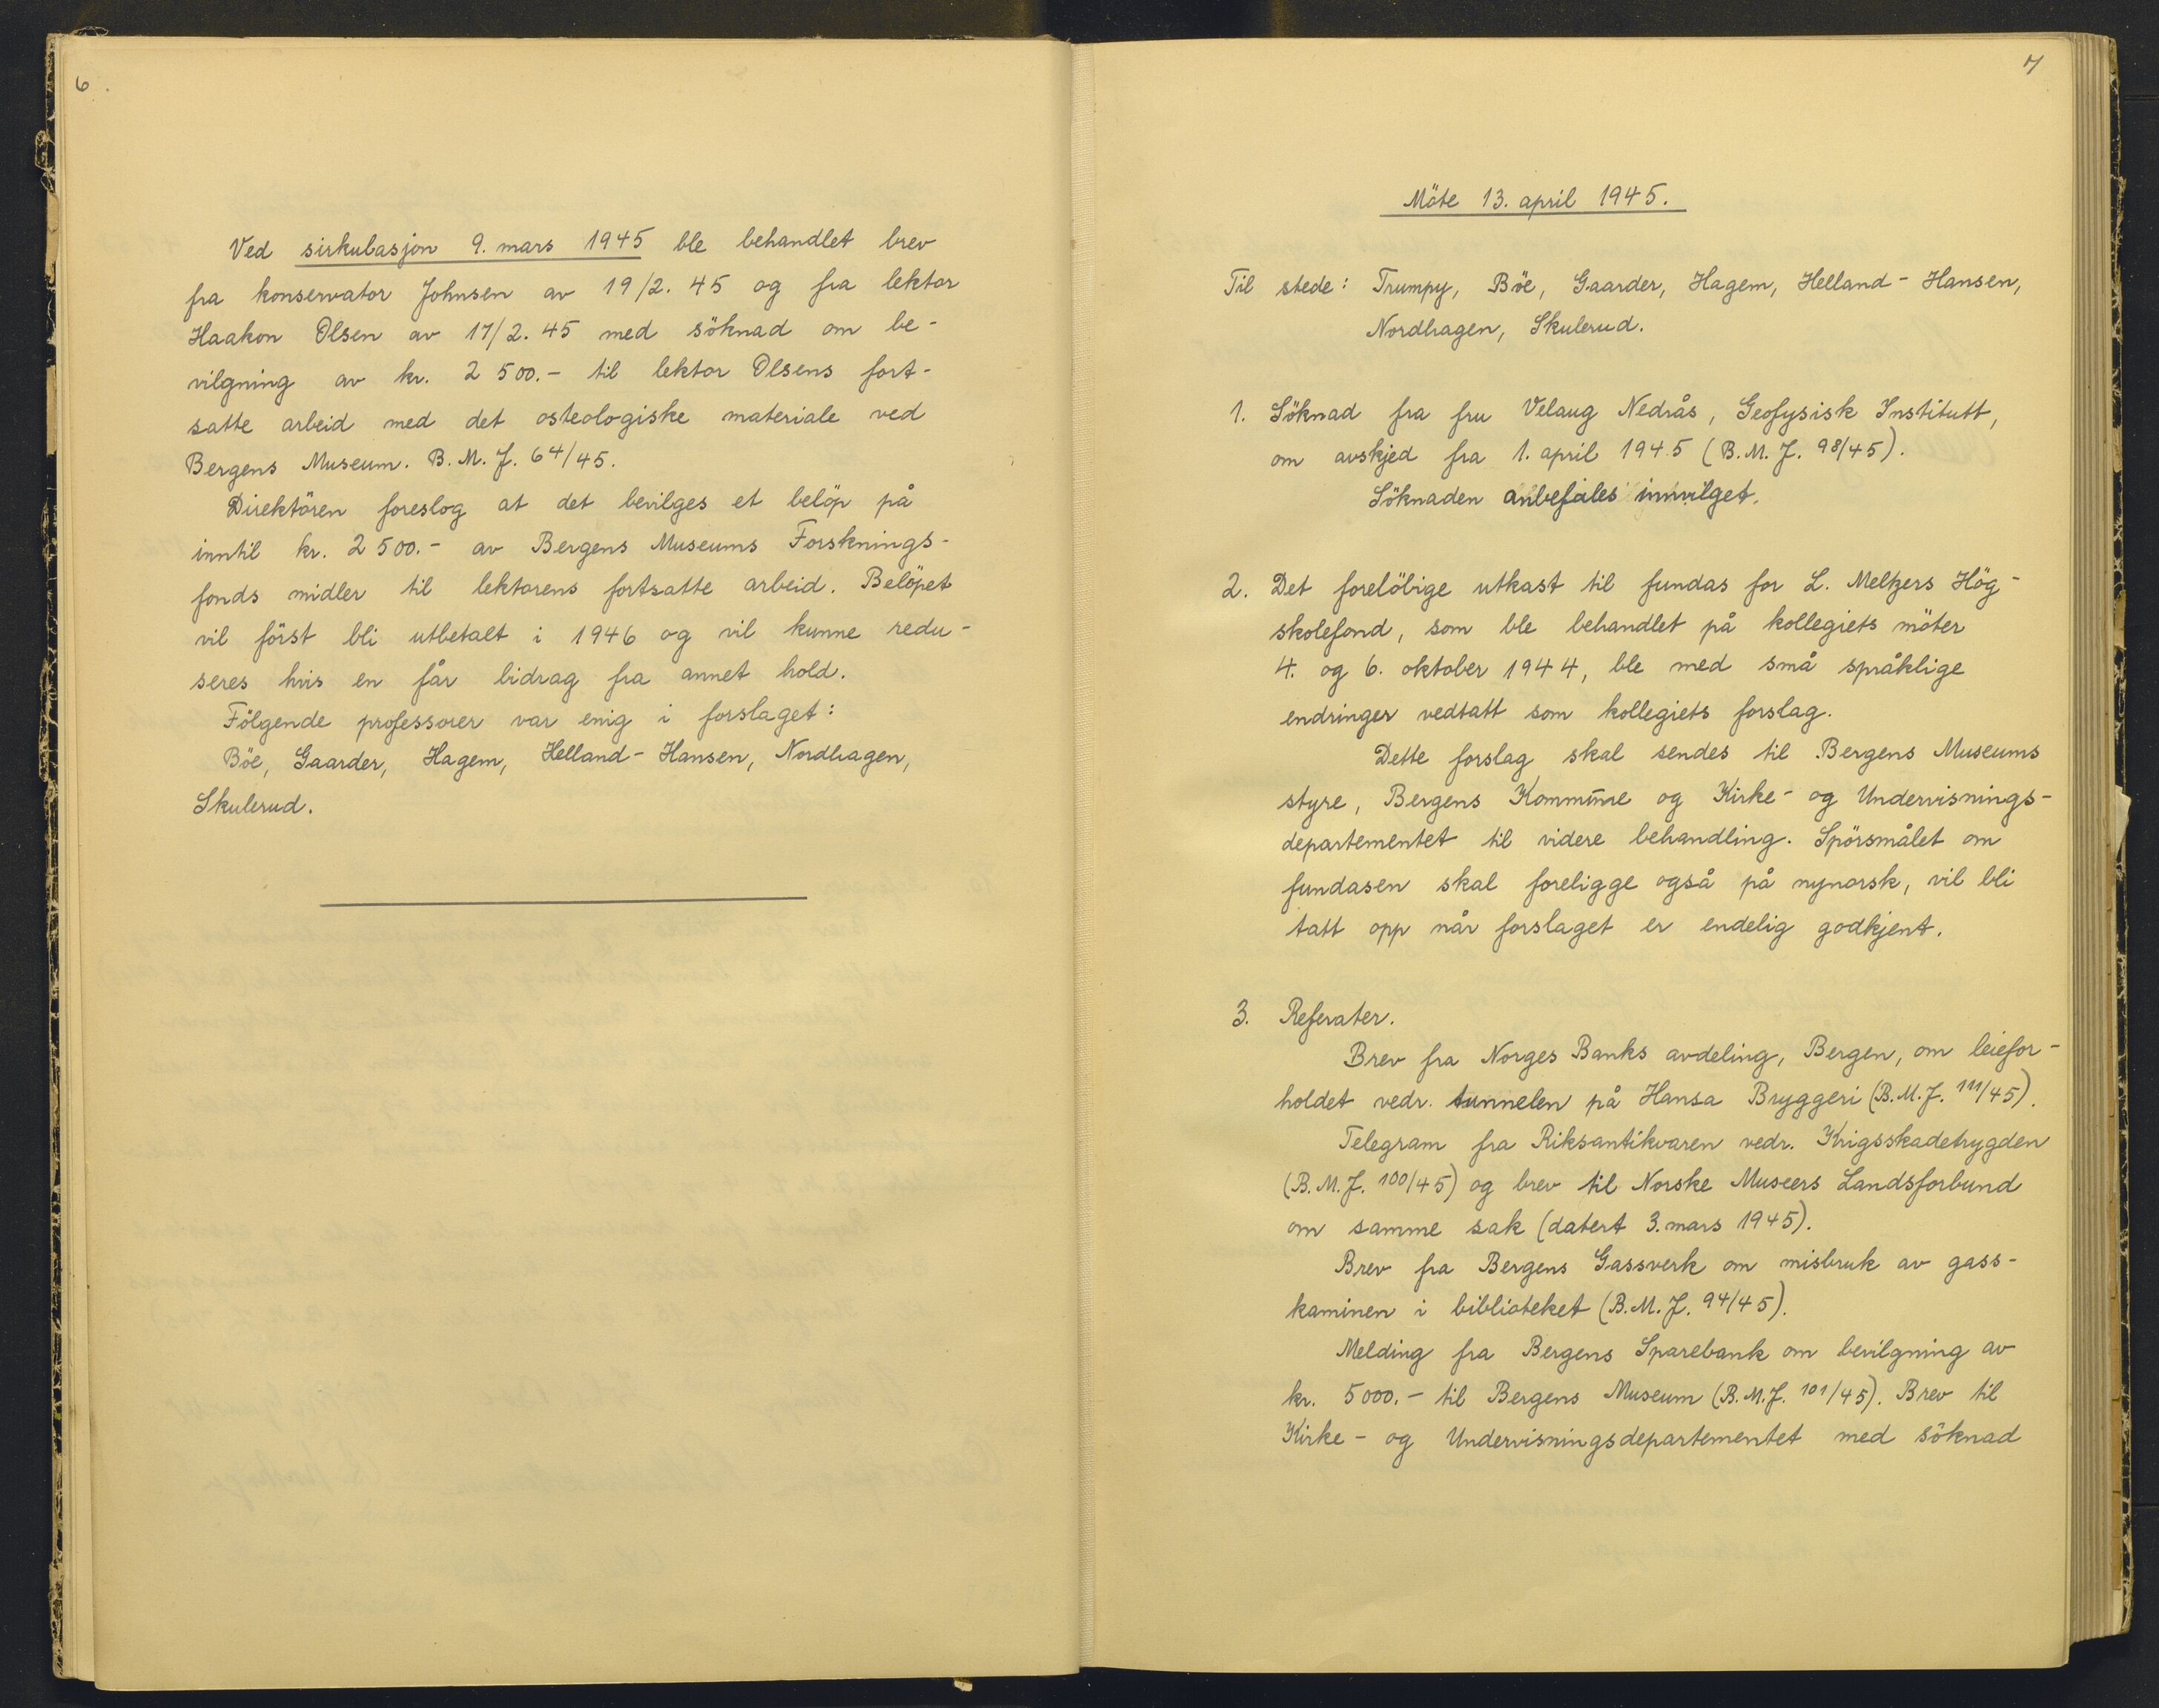 6.
Ved sirkulasjon 9. mars 1945 ble behandlet brev
fra konservator Johnsen av 19/2. 45 og fra lektor
Haakon Olsen av 17/2. 45 med söknad om be-
vilgning av kr. 2 500.- til lektor Olsens fort-
satte arbeid med det osteologiske materiale ved
Bergens Museum. B. M. J. 64/45.
Direktören foreslog at det bevilges et belöp på
inntil kr. 2 500.- av Bergens Museums Forsknings-
fonds midler til lektorens fortsatte arbeid. Belöpet
vil först bli utbetalt i 1946 og vil kunne redu-
seres hvis en får bidrag fra annet hold.
Fölgende professorer var enig i forslaget:
Böe, Gaarder, Hagem, Helland-Hansen, Nordhagen,
Skulerud.
7
Möte 13. april 1945.
Til stede: Trumpy, Böe, Gaarder, Hagem, Helland-Hansen,
Nordhagen, Skulerud.
1. Söknad fra fru Velaug Nedrås, Geofysisk Institutt,
om avskjed fra 1. april 1945 (B. M. J. 98/45).
Söknaden anbefales innvilget.
2. Det forelöbige utkast til fundas for L. Meltzers Hög-
skolefond, som ble behandlet på kollegiets möter
4. og 6. oktober 1944, ble med små språklige
endringer vedtatt som kollegiets forslag.
Dette forslag skal sendes til Bergens Museums
styre, Bergens Kommune og Kirke- og Undervisnings-
departementet til videre behandling. Spörsmålet om
fundasen skal foreligge også på nynorsk, vil bli
tatt opp når forslaget er endelig godkjent.
3. Referater.
Brev fra Norges Banks avdeling, Bergen, om leiefor-
holdet vedr. tunnelen på Hansa Bryggeri (B. M. J. 111/45).
Telegram fra Riksantikvaren vedr. Krigsskadetrygden
(B. M. J. 100/45) og brev til Norske Museers Landsforbund
om samme sak (datert 3. mars 1945).
Brev fra Bergens Gassverk om misbruk av gass-
kaminen i biblioteket (B. M. J. 94/45).
Melding fra Bergens Sparebank om bevilgning av
kr. 5 000.- til Bergens Museum (B. M. J. 101/45). Brev til
Kirke- og Undervisningsdepartementet med söknad